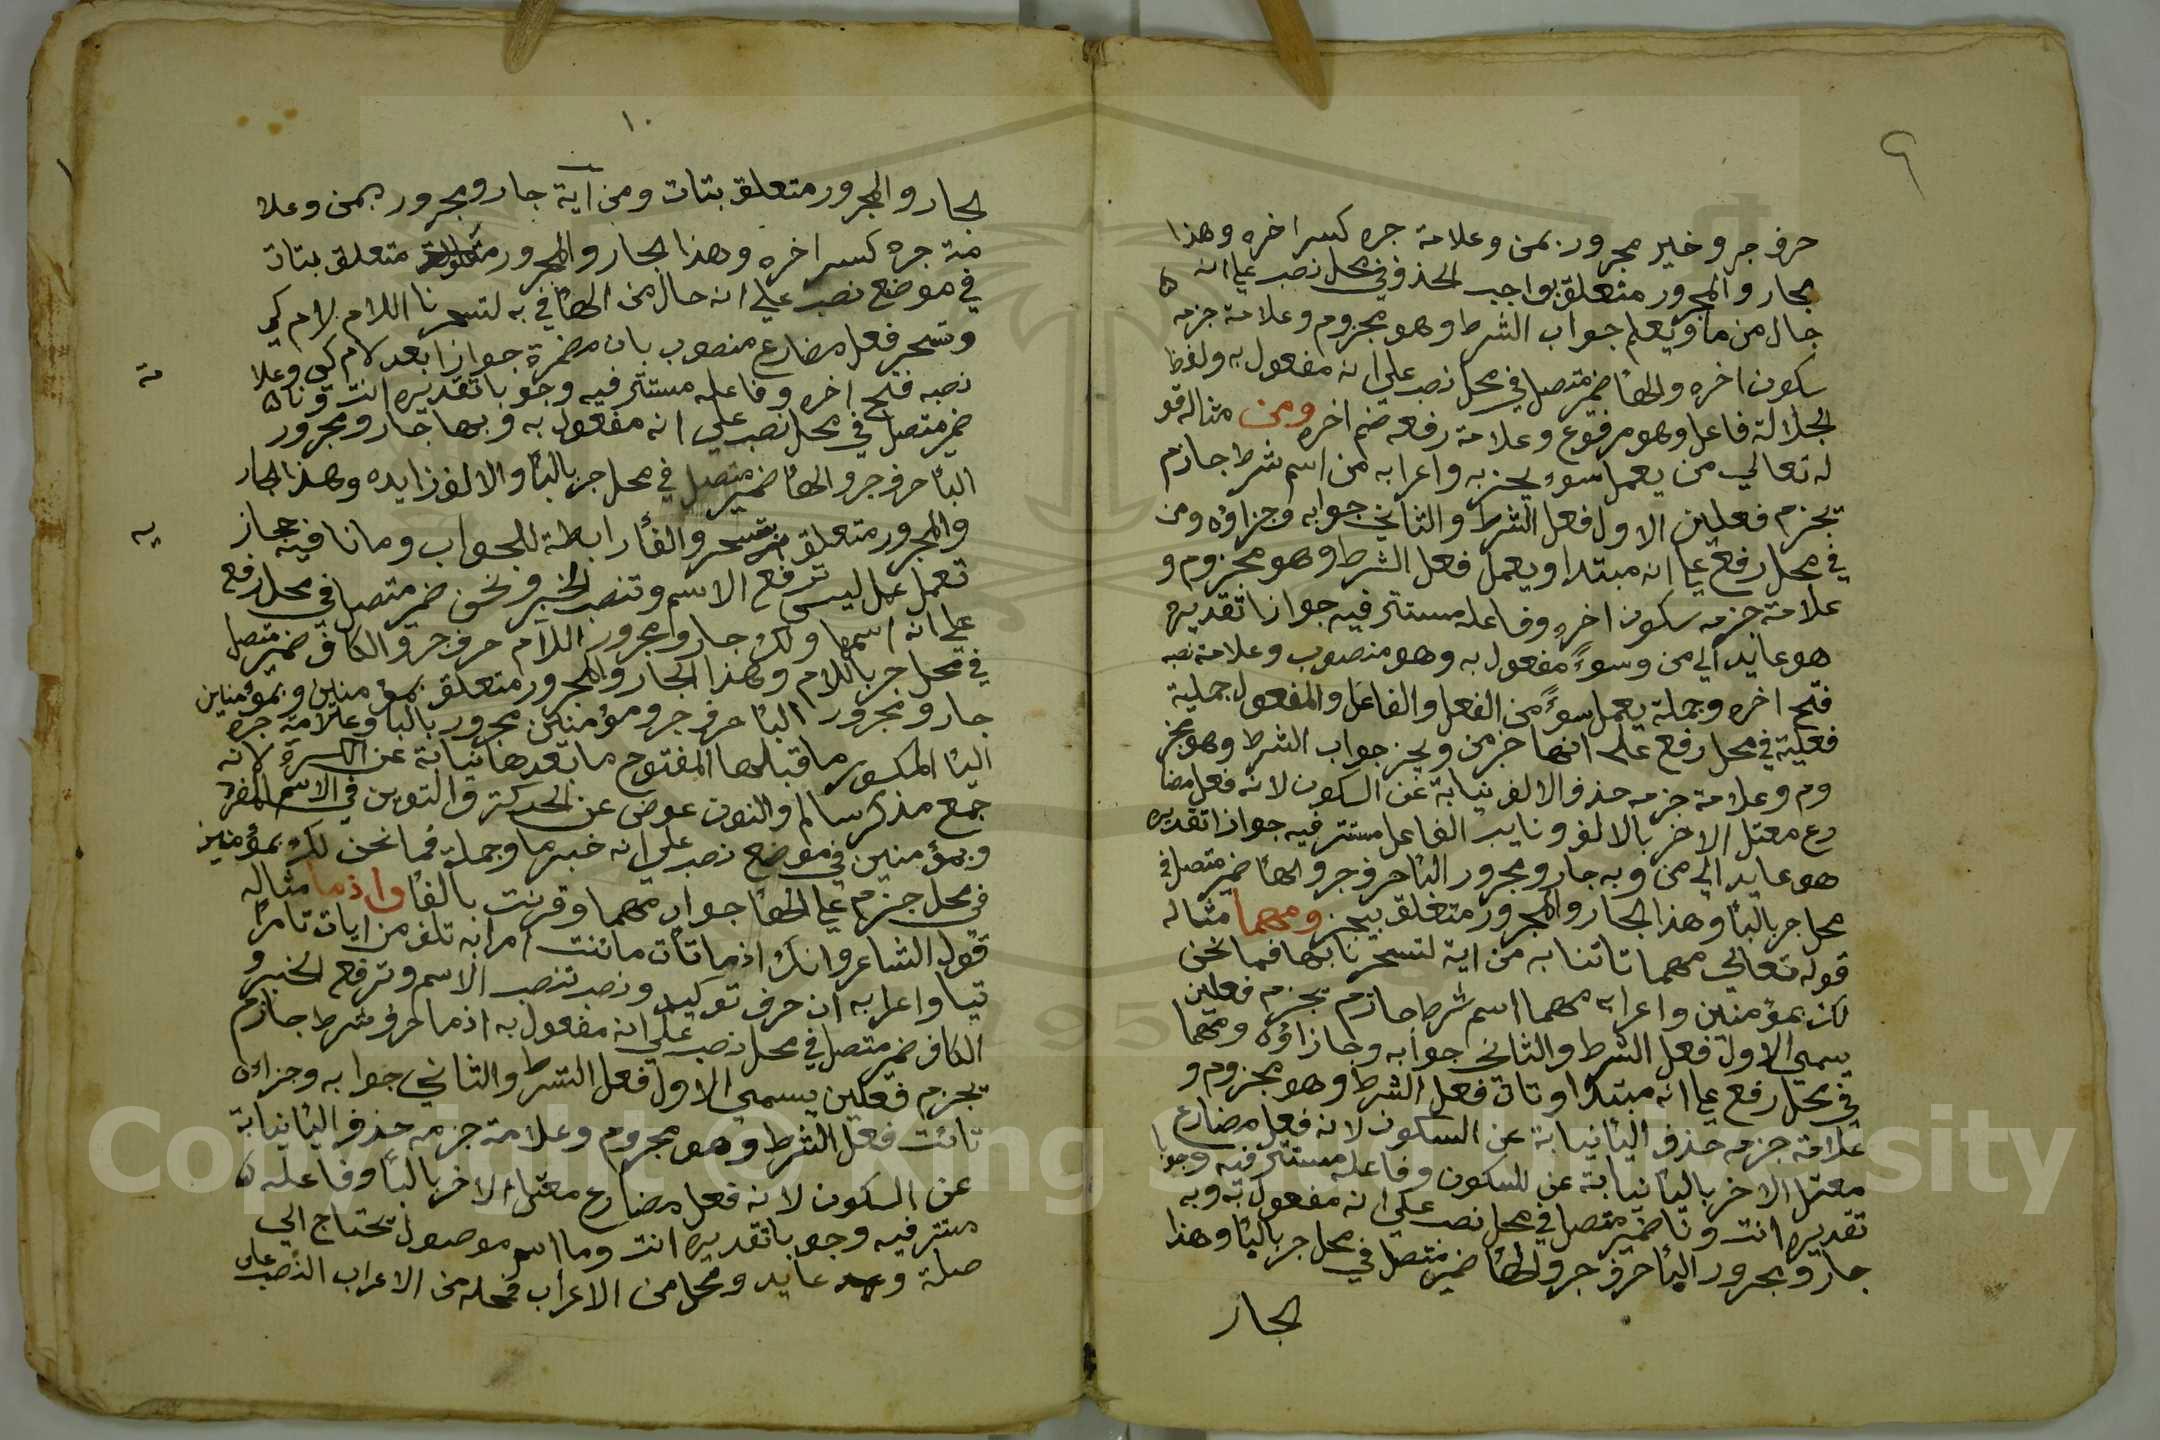 ٩
حرف جر وخير مجرور بمن وعلامة جره كسر اخره وهذا
الجار والمجرور متعلق بواجب الحذف في محل نصب على انه
حال من ما ويعلم جواب الشرط وهو مجزوم وعلامة جزمه
سكون اخره والهاء ضمير متصل في محل نصب على انه مفعول به ولفظ
الجلالة فاعل وهو مرفوع وعلامة رفعه ضم اخره ومن مثاله قو
له تعالي من يعمل سوء يجز به واعرابه من اسم شرط جازم
يجزم فعلين الاول فعل الشرط والثاني جوابه وجزاؤه ومن
في محل رفع على انه مبتدا ويعمل فعل الشرط وهو مجزوم و
علامة جزمه سكون اخره وفاعله مستتر فيه جوازا تقديره
هو عايد الي من وسوءً مفعول به وهو منصوب وعلامة نصبه
فتح اخره وجملة يعمل سوءً من الفعل والفاعل والمفعول جملية
فعلية في محل رفع على انها خبر من ويجز جواب الشرط وهو مجز
وم وعلامة جزمه حذف الالف نيابة عن السكون لانه فعل مضا
رع معتل الاخر بالالف ونايب الفاعل مستتر فيه جوازا تقديره
هو عايد الي من وبه جار ومجرور الباء حرف جر والهاء ضمير متصل في
محل جر بالباء وهذا الجار والمجرور متعلق بيجز ومهما مثاله
قوله تعالي مهما تاتنا به من اية لتسحرنا بها فما نحن
لك بمؤمنين واعرابه مهما اسم شرط جازم يجزم فعلين
يسمي الاول فعل الشرط والثاني جوابه وجازاؤه ومهما
في محل رفع على انه مبتدا وتات فعل الشرط وهو مجزوم و
علامة جزمه حذف الياء نيابة عن السكون لانه فعل مضارع
معتل الاخر بالياء نيابة عن السكون وفاعله مستتر فيه وجوبا
تقديره انت ونا ضمير متصل في محل نصب على انه مفعول به وبه
جار ومجرور الباء حرف جر والهاء ضمير متصل في محل جر بالباء وهذا
الجار
١٠
الجار والمجرور متعلق بتات ومن آية جار ومجرور بمن وعلا
مة جره كسر اخره وهذا الجار والمجرور متعلق بتات
في موضع نصب على انه حال من الهاء في به لتسحرنا اللام لام كي
وتسحر فعل مضارع منصوب بان مضمرة جوازا بعد لام كي وعلا
مة
نصبه فتح اخره وفاعله مستتر فيه وجوبا تقديره انت ونا
ضمير متصل في محل نصب على انه مفعول به وبها جار ومجرور
الباء حرف جر والهاء ضمير متصل في محل جر بالباء والالف زايده وهذا الجار
والمجرور متعلق بتسحر والفاء رابطة للجواب وما نافية حجاز
يه
تعمل عمل ليس ترفع الاسم وتنصب الخبر ونحن ضمير متصل في محل رفع
على انه اسمها ولك جار ومجرور اللام حرف جر والكاف ضمير متصل
في محل جر باللام وهذا الجار والمجرور متعلق بمؤمنين وبمؤمنين
جار ومجرور الباء حرف جر ومؤمنين مجرور بالباء وعلامة جره
الياء المكسور ما قبلها المفتوح ما بعدها نيابة عن الكسرة لانه
جمع مذكر سالم والنون عوض عن الحركة والتنوين في الاسم المفرد
وبمؤمنين في موضع نصب على انه خبر ما وجملة فما نحن لك بمؤمنين
في محل جزم على انها جواب مهما وقرنت بالفاء واذما مثاله
قول الشاعر وانك اذما تات ما نت امرا به تلف من ايات تامرا
تيا واعرابه ان حرف توكيد ونصب تنصب الاسم وترفع الخبر و
الكاف ضمير متصل في محل نصب على انه مفعول به اذما حرف شرط جازم
يجزم فعلين يسمي الاول فعل الشرط والثاني جوابه وجزاءه
تائت فعل الشرط وهو مجزوم وعلامة جزمه حذف الياء نيابة
عن السكون لانه فعل مضارع معتل الاخر بالياء وفاعله
مستتر فيه وجوبا تقديره انت وما اسم موصول يحتاج الي
صلة وعايد ومحل من الاعراب فمحله من الاعراب النصب على
Copyright © King Saud University
195